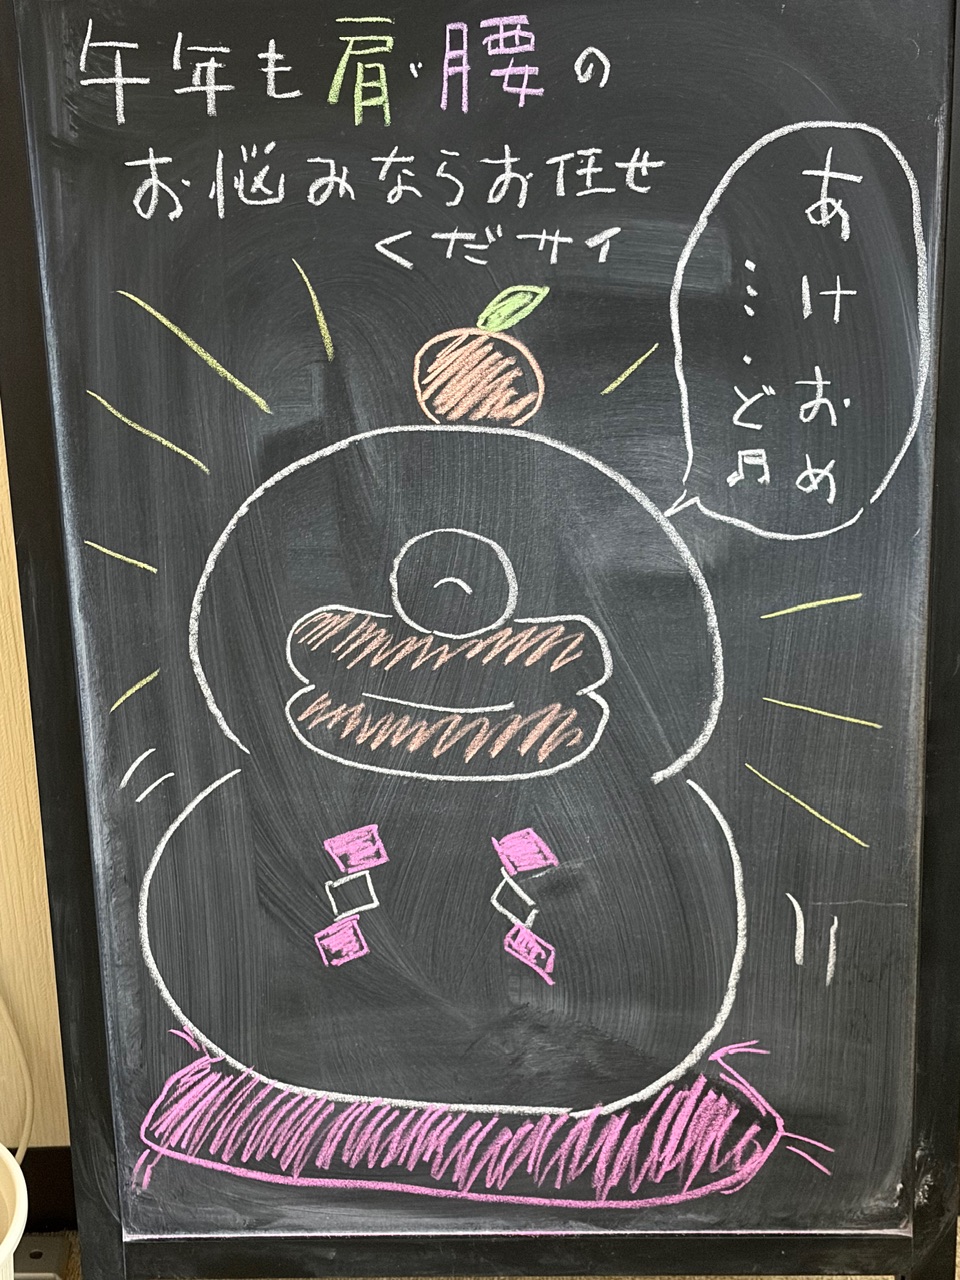 午年も肩・腰の
お悩みならお任せ
くだサイ
あけおめ
……ど♫